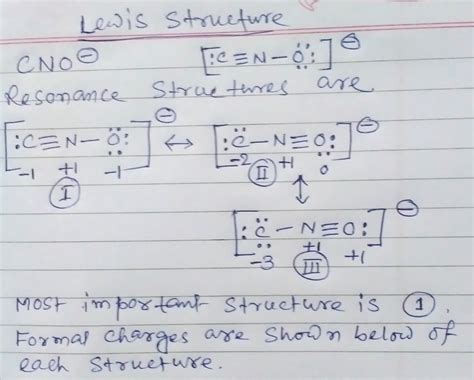 Lewis Structure
CNO⊖ [:C≡N–Ö:]⊖
Resonance Structures are
[:C≡N–Ö:]⊖ ↔ [:C̈–N≡O:]⊖
-1 +1 -1 -2 +1 0
I II
↕
[:C̈–N≡O:]⊖
-3 +1 +1
III
Most important structure is ①.
Formal charges are shown below of
each structure.